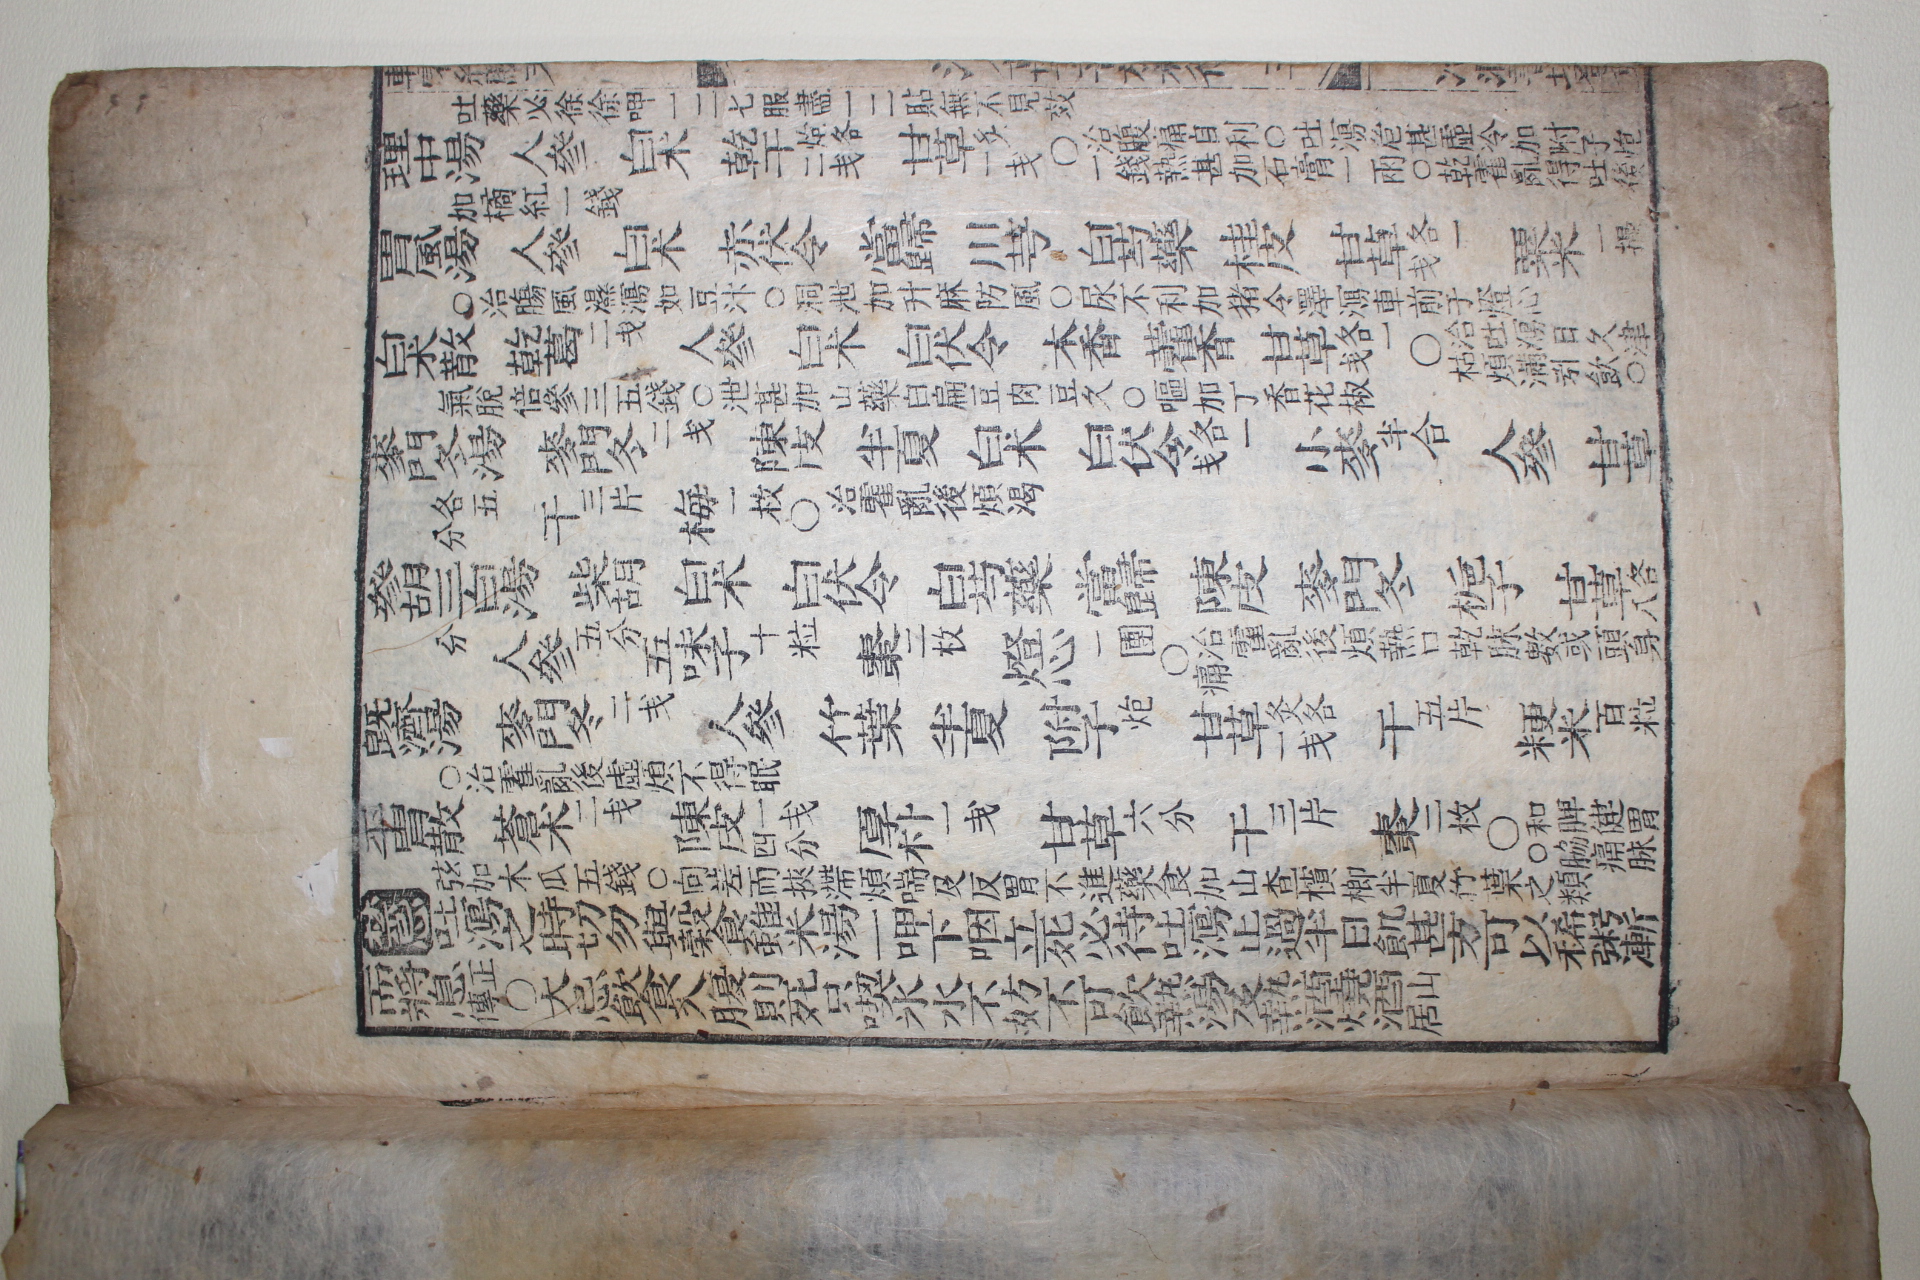 吐藥必徐徐呷一二七服盡一二貼無不見效
理中湯 人參 白朮 乾干炮各二戔 甘草炙一戔 ○治腹痛自利○吐瀉危甚虛冷加附子炮一錢熱甚加石膏一兩○乾霍亂得吐後
加橘紅一錢
胃風湯 人參 白朮 赤伏令 當歸 川芎 白芍藥 桂皮 甘草各一戔 粟米一撮
○治腸風濕瀉如豆汁○洞泄加升麻防風○尿不利加猪令澤瀉車前子燈心
白朮散 乾葛二戔 人參 白朮 白伏令 木香 藿香 甘草各一戔 ○治吐瀉日久津枯煩滿引飮○
氣脫倍參三五錢○泄甚加山藥白扁豆肉豆久○嘔加丁香花椒
麥門冬湯 麥門冬二戔 陳皮 半夏 白朮 白伏令各一戔 小麥半合 人參 甘草
各五分 干三片 梅一枚○治霍亂後煩渴
參胡三白湯 柴胡 白朮 白伏令 白芍藥 當歸 陳皮 麥門冬 梔子 甘草各八
分 人參五分 五味子十粒 棗二枚 燈心一團○治霍亂後煩熱口乾脉數或頭身痛
旣濟湯 麥門冬二戔 人參 竹葉 半夏 附子炮 甘草炙各一戔 干五片 粳米百粒
○治霍亂後虛煩不得眠
平胃散 蒼朮二戔 陳皮一戔四分 厚朴一戔 甘草六分 干三片 棗二枚○和脾健胃○脇痛脉
弦加木瓜五錢○向差而挾滯煩喘及反胃不進藥食加山査檳榔半夏竹葉之類
吐瀉之時切勿與穀食雖米湯一呷下咽立死必待吐瀉止過半日飢甚方可以稀粥漸
而將息正傳○大忌飮食入腹則死只喫氷水不妨不可飮熱湯及熱酒燒酒山居